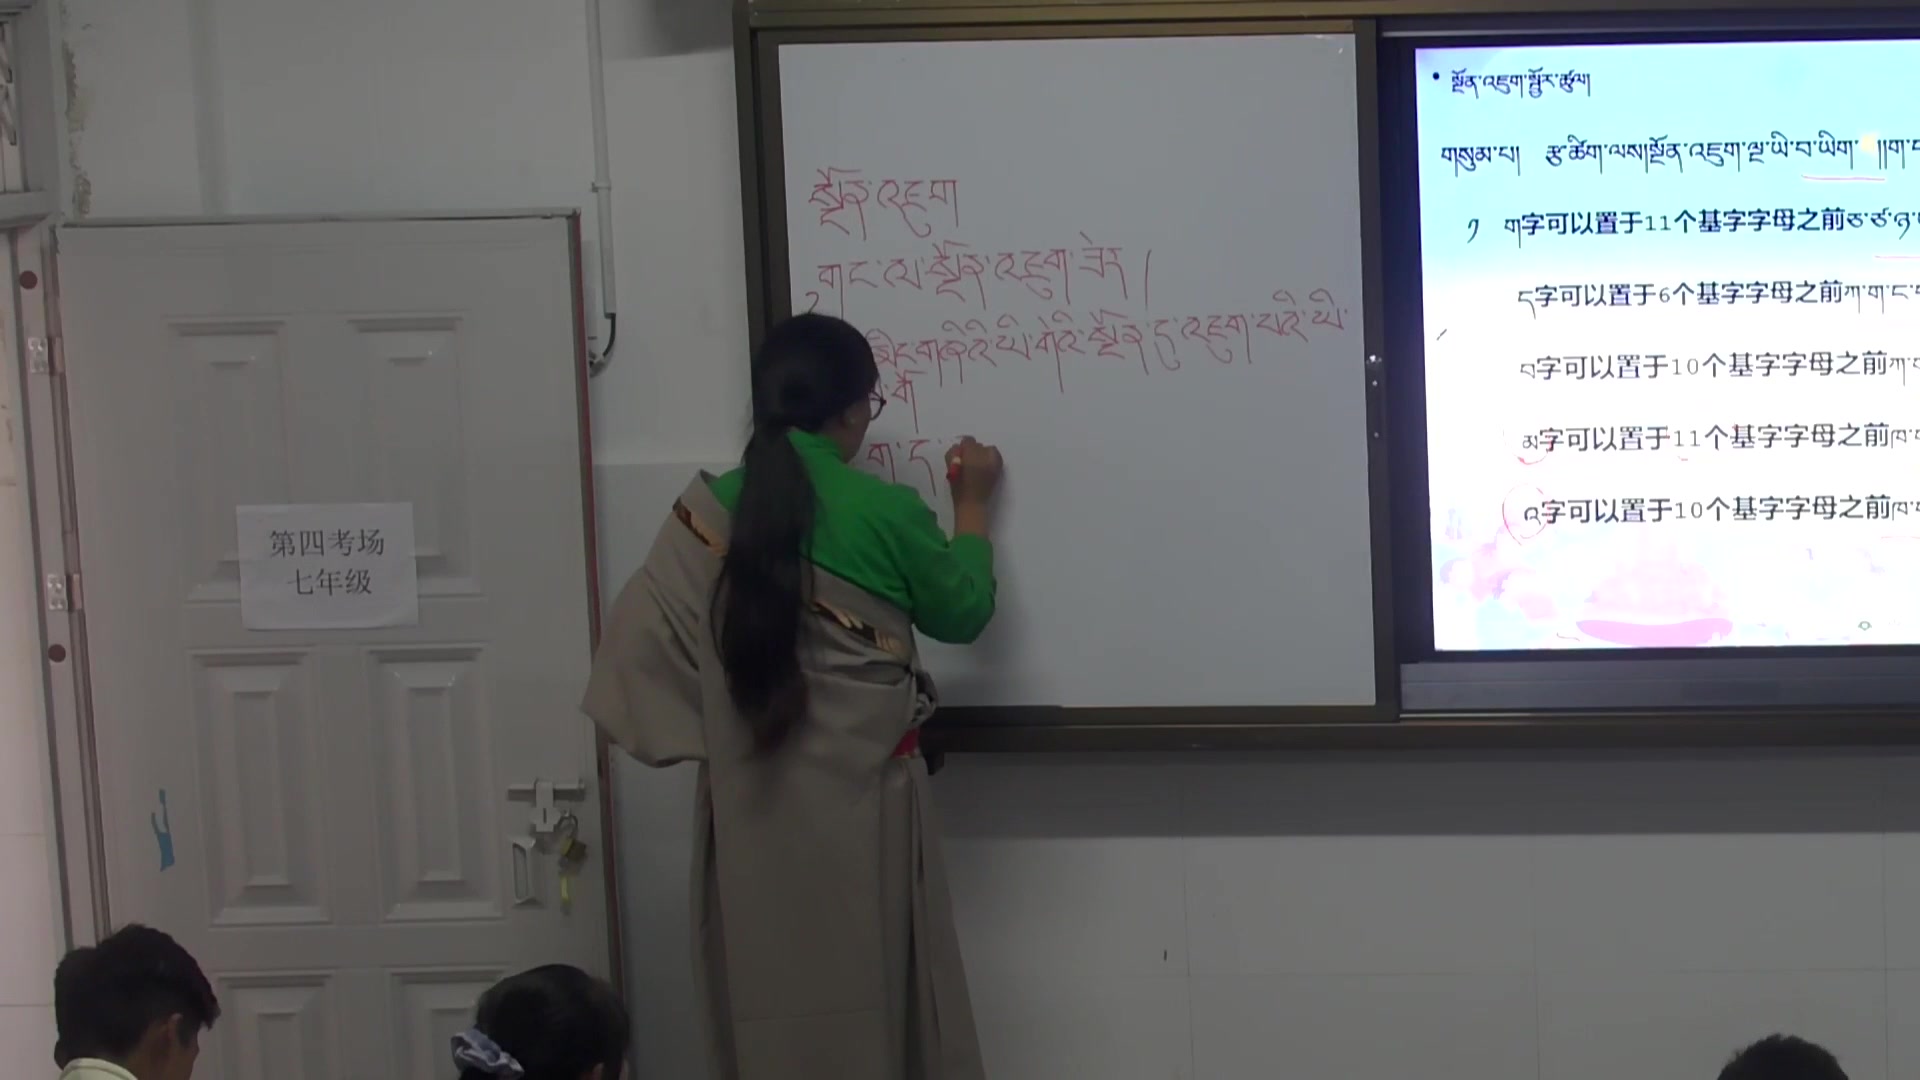 སྔོན་འཇུག
གང་ལ་སྔོན་འཇུག་ཟེར།
མིང་གཞིའི་ཡི་གེའི་སྔོན་དུ་འཇུག་པའི་ཡི་
ག་ད་
• སྔོན་འཇུག་སྦྱོར་ཚུལ།
གསུམ་པ། རྩ་ཚིག་ལས།སྔོན་འཇུག་ལྔ་ཡི་བ་ཡིག །།ག་
༡ ག字可以置于11个基字字母之前ཅ་ཙ་ཉ་
ད字可以置于6个基字字母之前ཀ་ག་ང་
བ字可以置于10个基字字母之前ཀ་
མ字可以置于11个基字字母之前ཁ་
འ字可以置于10个基字字母之前ཁ་
第四考场
七年级